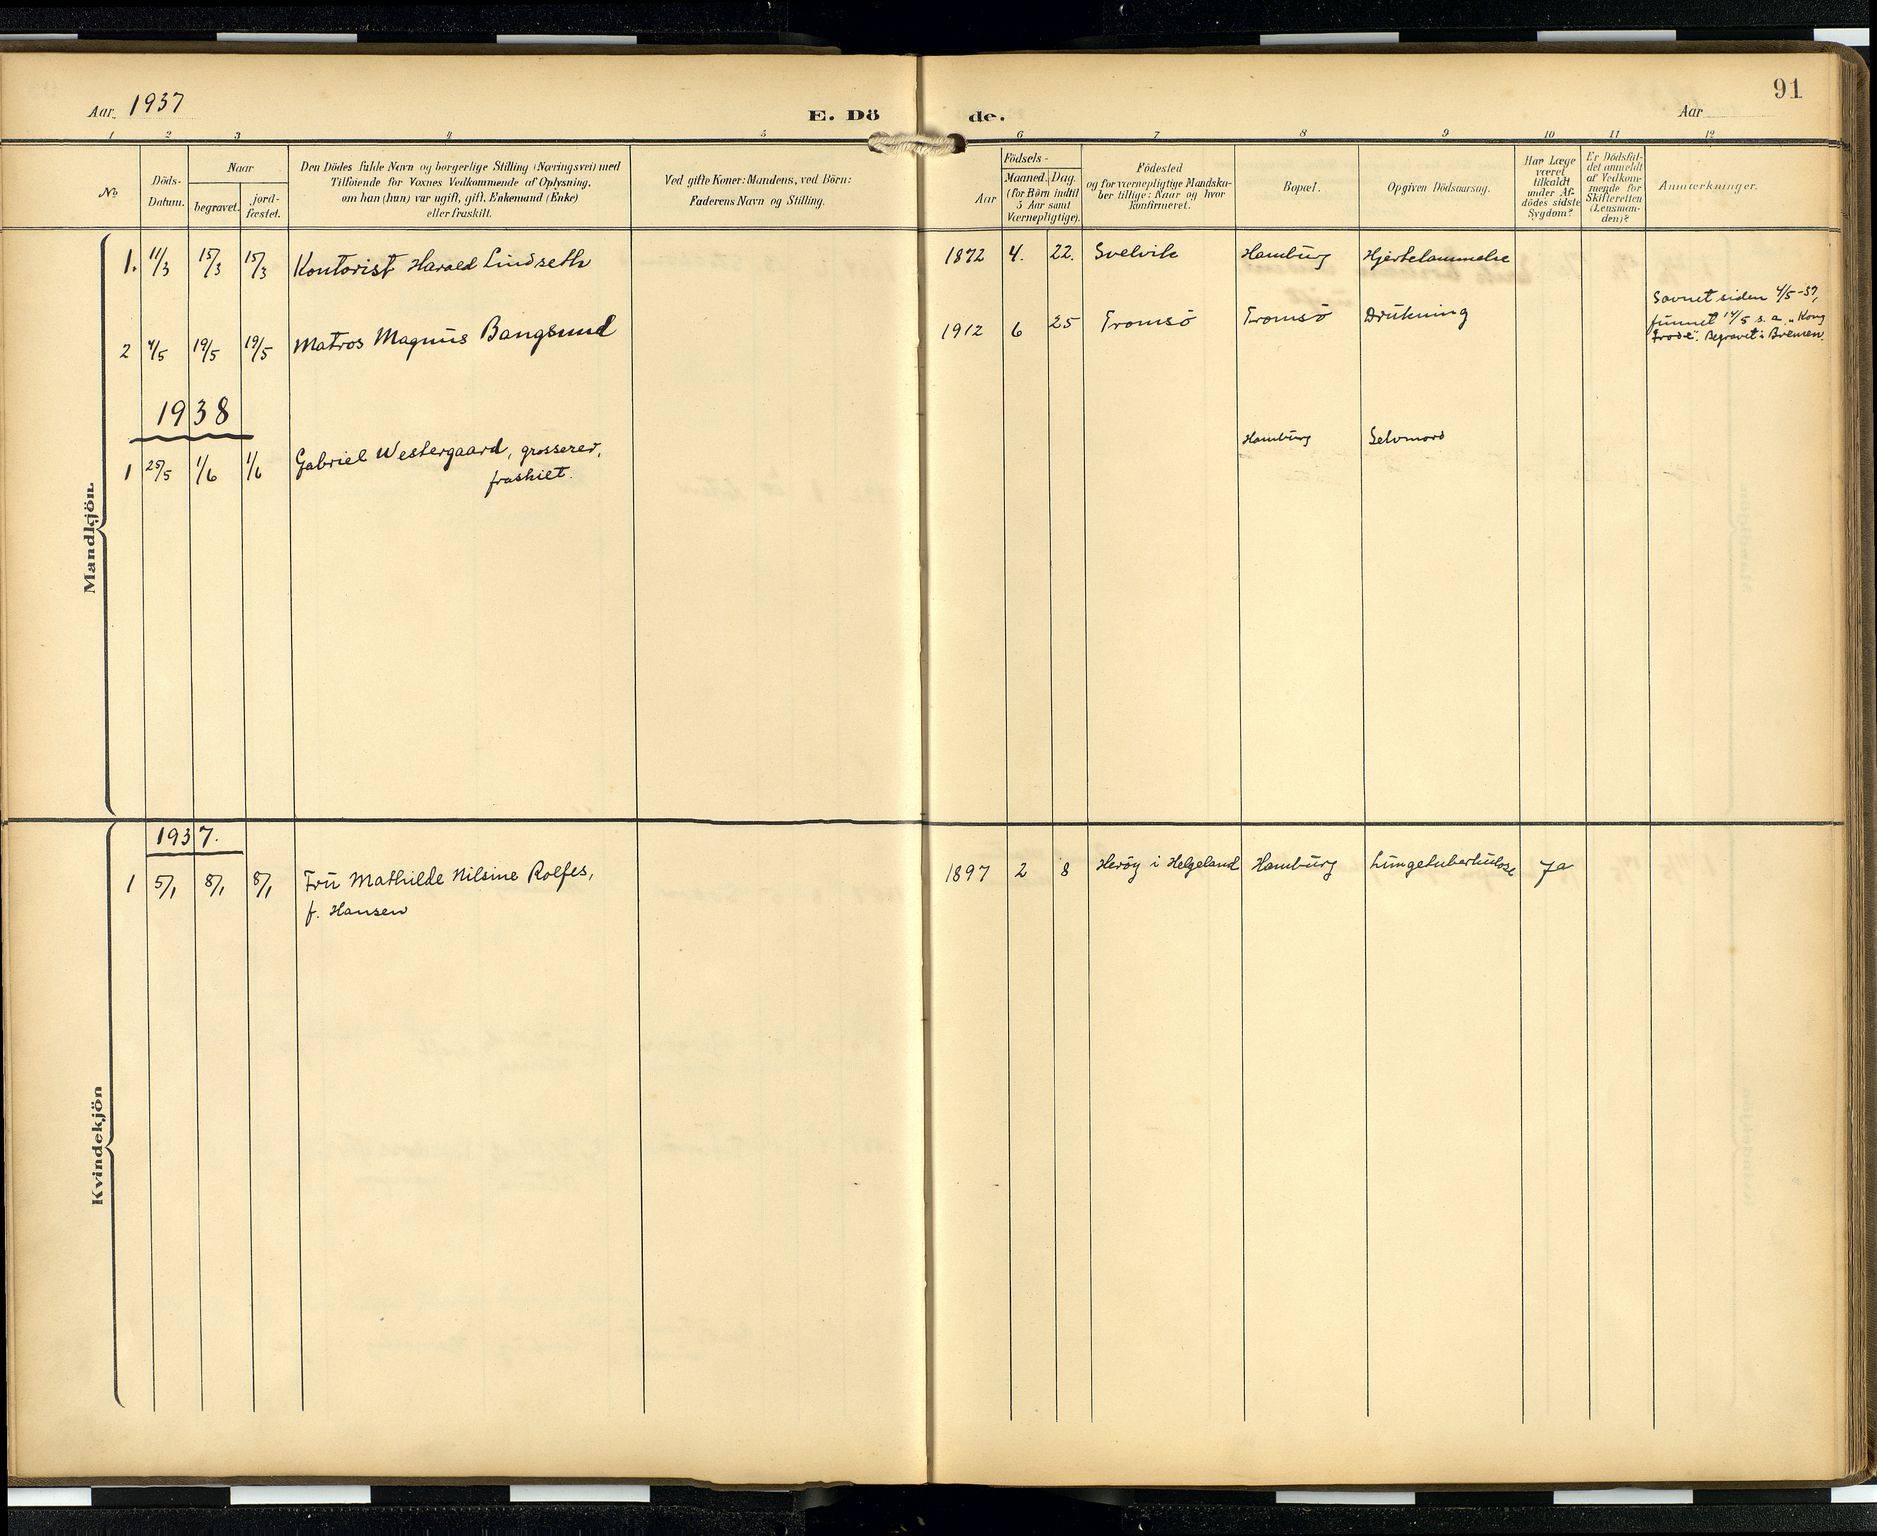 Aar. 1937
E. Döde.
Aar
91
1 2 3 4 5 6 7 8 9 10 11 12
No
Döds-
Datum.
Naar
begravet.
jord-
fæstet.
Den Dödes fulde Navn og borgerlige Stilling (Næringsvei) med
Tilföiende for Voxnes Vedkommende af Oplysning,
om han (hun) var ugift, gift, Enkemand (Enke)
eller fraskilt.
Ved gifte Koner: Mandens, ved Börn:
Faderens Navn og Stilling.
Födsels-
Aar
Maaned.
Dag.
(for Börn indtil
5 Aar samt
Værnepligtige).
Födested
og for værnepligtige Mandska-
ber tillige: Naar og hvor
konfirmeret.
Bopæl.
Opgiven Dödsaarsag.
Har Læge
været
tilkaldt
under Af-
dödes sidste
Sygdom?
Er Dödsfal-
det anmeldt
af Vedkom-
mende for
Skifteretten
(Lensman-
den)?
Anmærkninger.
Mandkjön.
1. 11/3 15/3 15/3 Kontorist Harald Lindseth 1872 4. 22. Svelvik Hamburg Hjertelammelse
2 4/5 19/5 19/5 Matros Magnus Bangsund 1912 6 25 Tromsö Tromsö Drukning
Savnet siden 4/5-37,
funnet 14/5 s.a. „Kong
Frode". Begravet i Bremen.
1938
1 25/5 1/6 1/6 Gabriel Westergaard, grosserer, Hamburg Selvmord
fraskilt.
Kvindekjön
1937.
1 5/1 8/1 8/1 Fru Mathilde Nilsine Rolfes, 1897 2 8 Heröy i Helgeland Hamburg Lungetuberkulose Ja
f. Hansen